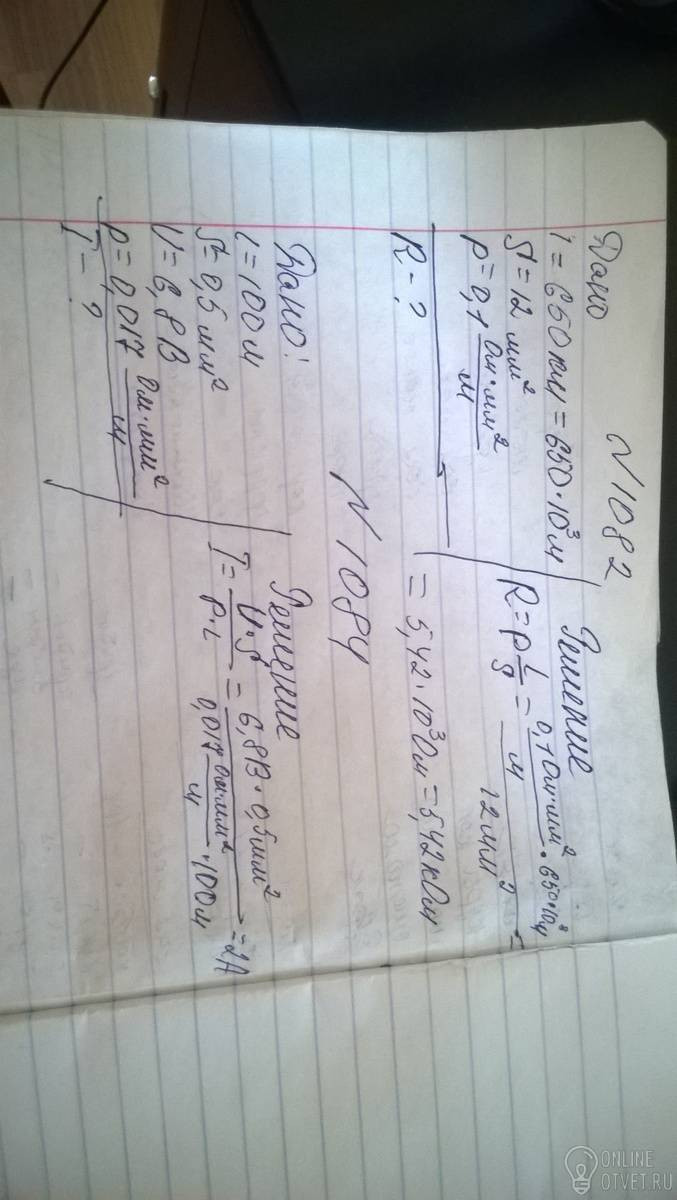 N 1082
Дано
l = 650 км = 650·10³ м
S = 12 мм²
ρ = 0,1 Ом·мм²/м
R - ?
Решение
R = ρ L/S = 0,1 Ом·мм²/м · 650·10³ м / 12 мм² =
= 5,42·10³ Ом = 5,42 кОм
N 1084
Дано:
L = 100 м
S = 0,5 мм²
U = 6,8 В
ρ = 0,017 Ом·мм²/м
I - ?
Решение
I = U·S/ρ·L = 6,8 В · 0,5 мм² / 0,017 Ом·мм²/м · 100 м = 2 А
ONLINE
OTVET.RU